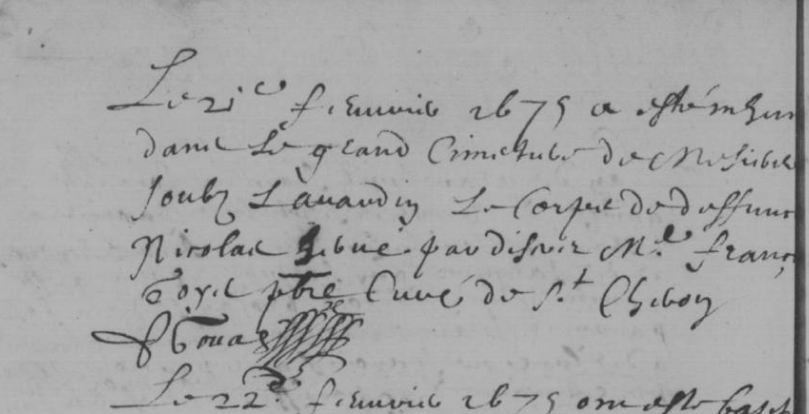 Le 21e feuvrier 1675 a esté inhum
dans Le grand Cimetiere de Mesiere
soubz Lavardin Le Corps de deffunc
Nicolas par discret Me. franç
ptre Curé de St. Chevon

Le 22e feuvrier 1675 ont esté